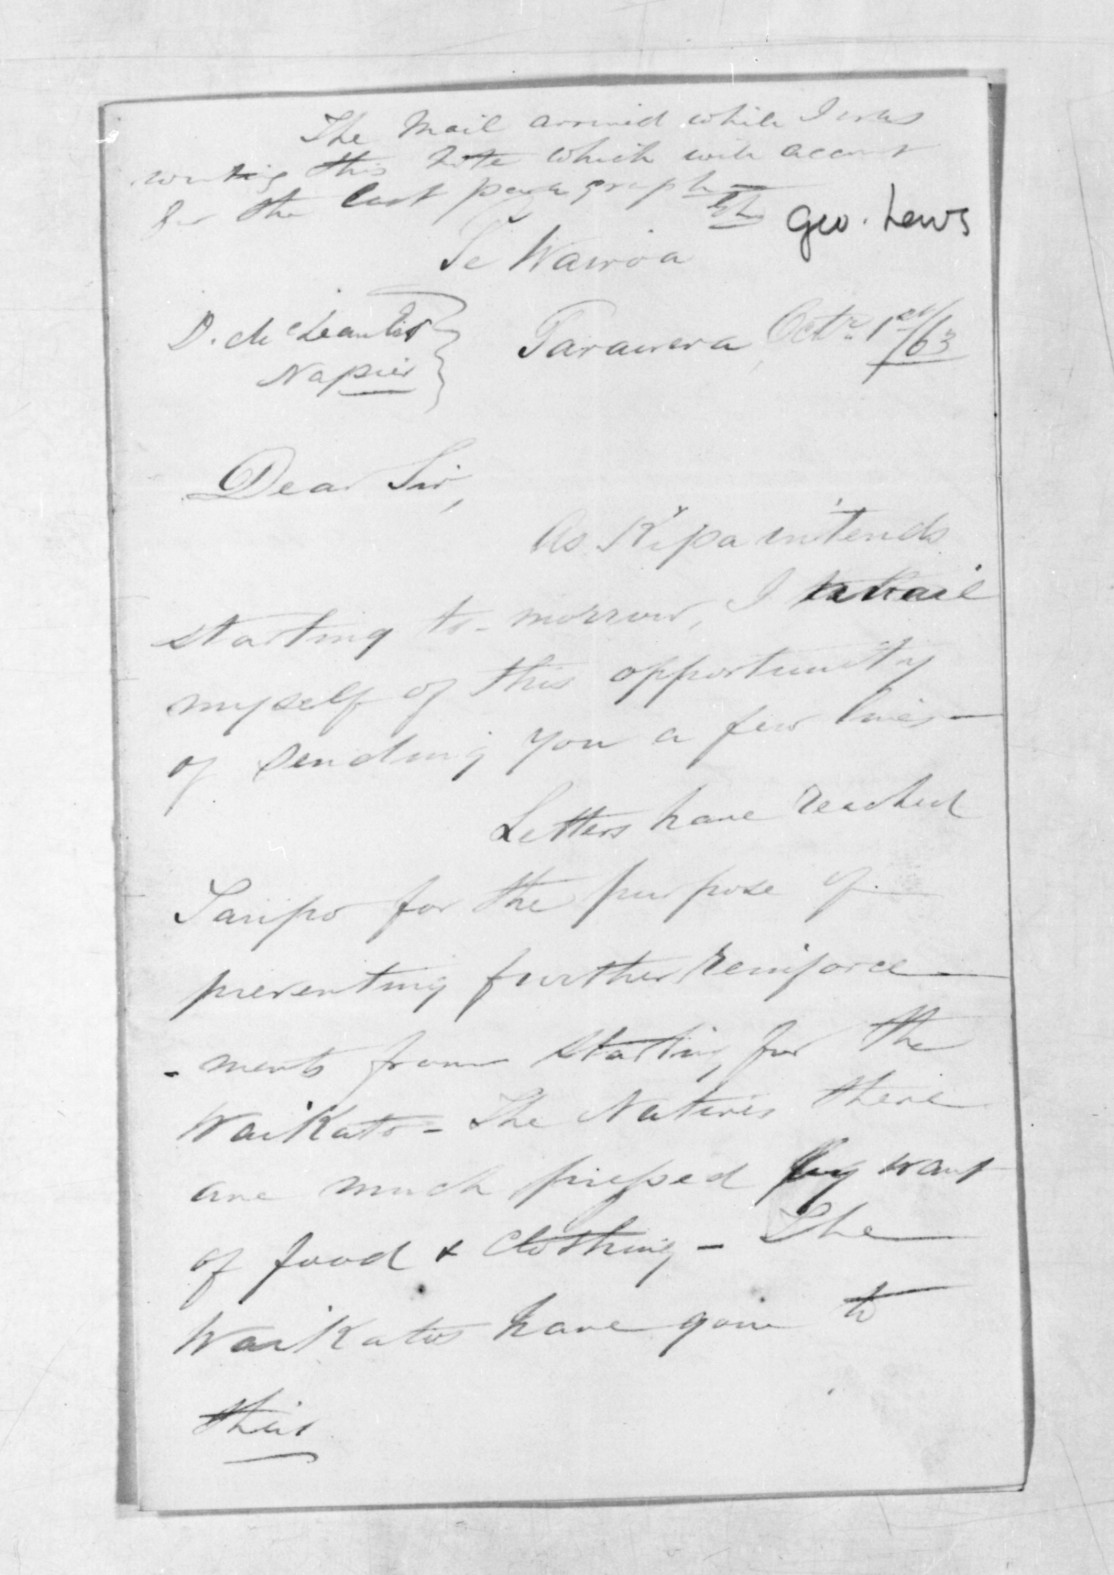 The Mail arrived while I was
writing this note which will account
for the last paragraph
Geo. Lews
Te Wairoa
D. McLean Esq
Napier
Tarawera Octr. 1st/63
Dear Sir,
As Kipa intends
starting to-morrow, I avail
myself of this opportunity
of sending you a few lines—
Letters have reached
Taupo for the purpose of
preventing further reinforce
-ments from starting for the
Waikato - The Natives there
are much pressed by want
of food & clothing - The
Waikatos have gone to
their